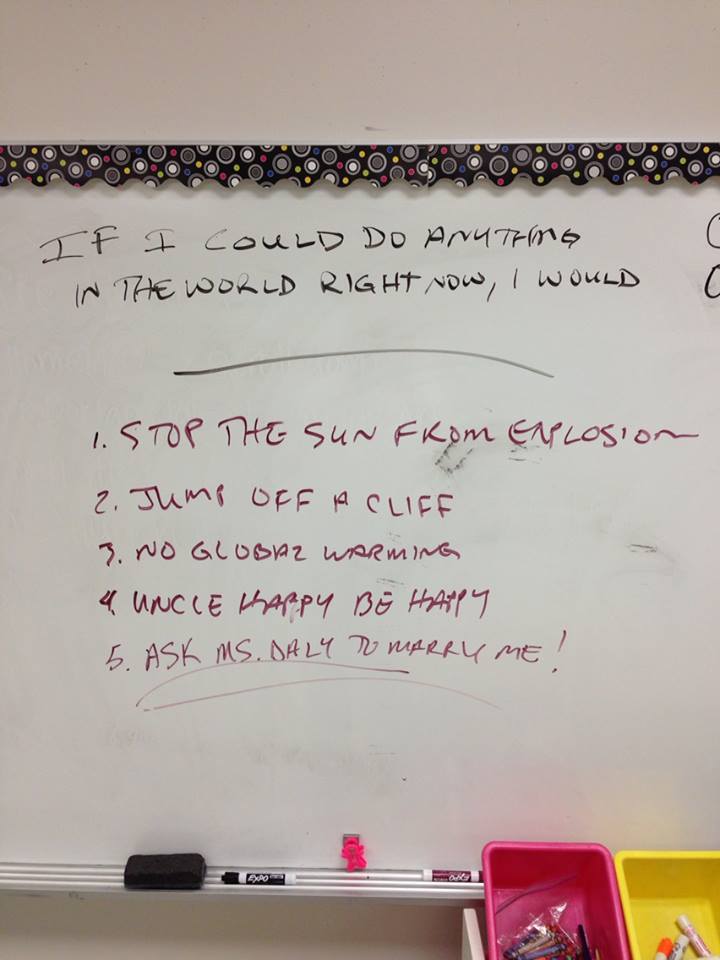 IF I COULD DO ANYTHING
IN THE WORLD RIGHT NOW, I WOULD
1. STOP THE SUN FROM EXPLOSION
2. JUMP OFF A CLIFF
3. NO GLOBAL WARMING
4. UNCLE HAPPY BE HAPPY
5. ASK MS. DALY TO MARRY ME!
EXPO
EXPO